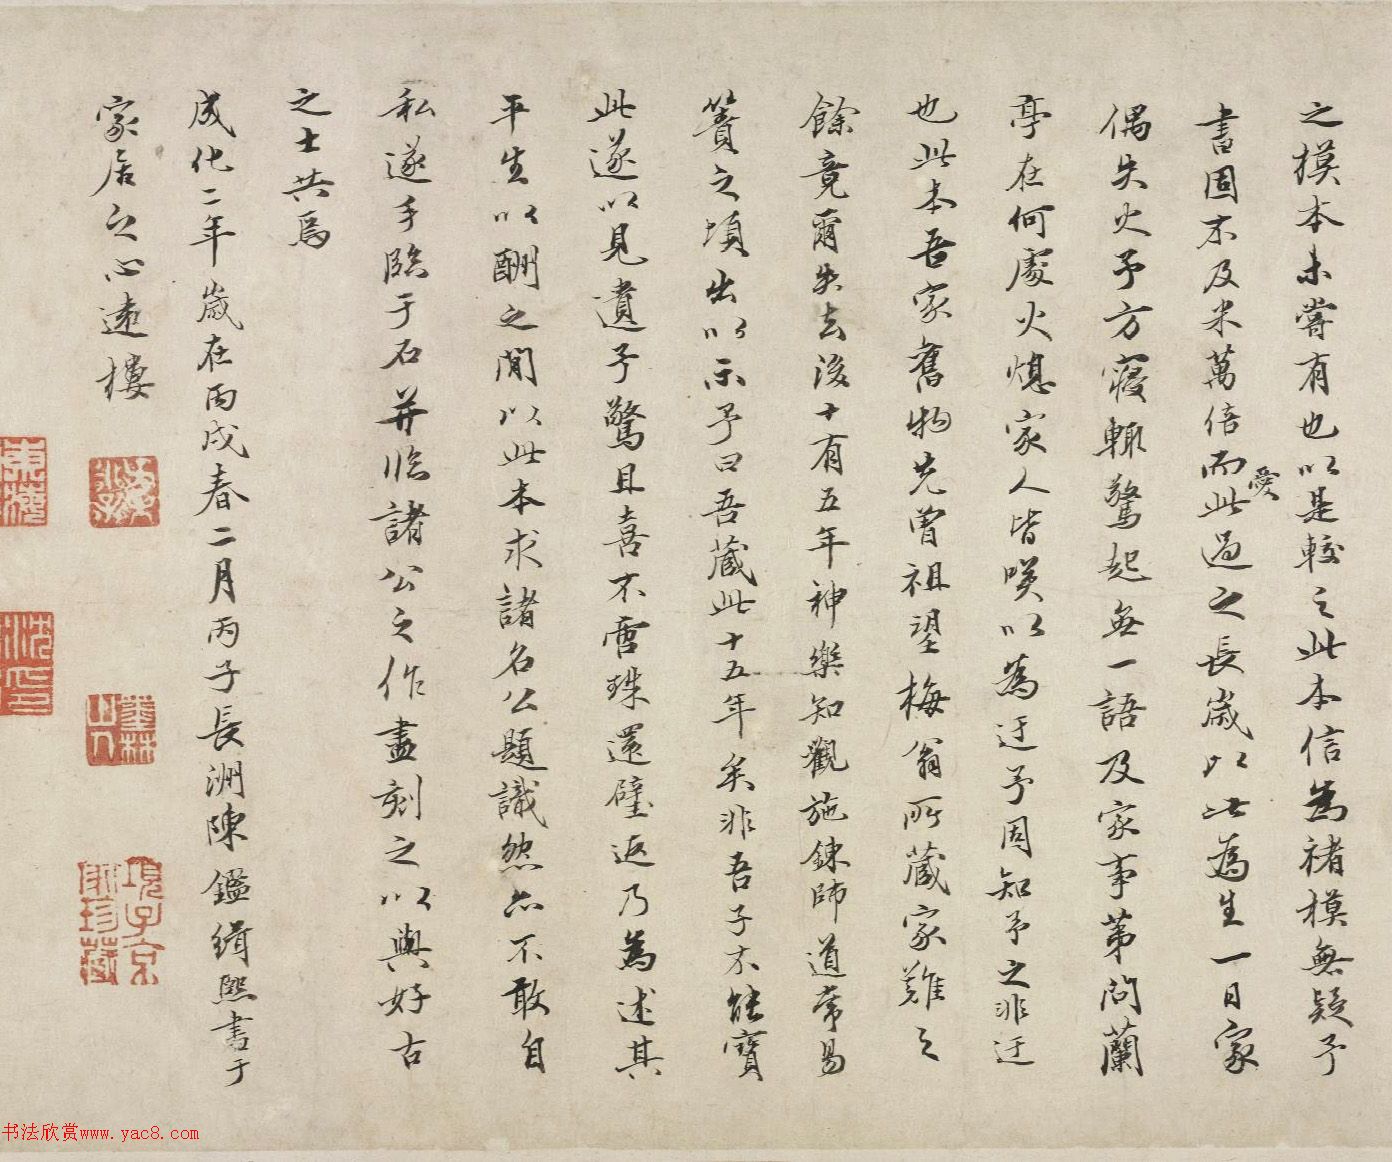 之摸本未嘗有也以是較之此本信為褚模無疑予
書固不及米萬倍而此愛過之長歲以此為生一日家
偶失火予方寢輒驚起無一語及家事第問蘭
亭在何處火熄家人皆咲以為迂予固知予之非迂
也此本吾家舊物先曾祖望梅翁所藏家難之
餘竟爾失去後十有五年神樂知觀施鍊師道常易
簀之頃出以示予曰吾藏此十五年矣非吾子不能寶
此遂以見遺予驚且喜不啻珠還璧返乃為述其
平生以酬之閒以此本求諸名公題識然亦不敢自
私遂手臨于石并臨諸公之作盡刻之以與好古
之士共焉
成化二年歲在丙戌春二月丙子長洲陳鑑緝熙書于
家居之心遠樓
項子京家珍藏
书法欣赏www.yac8.com